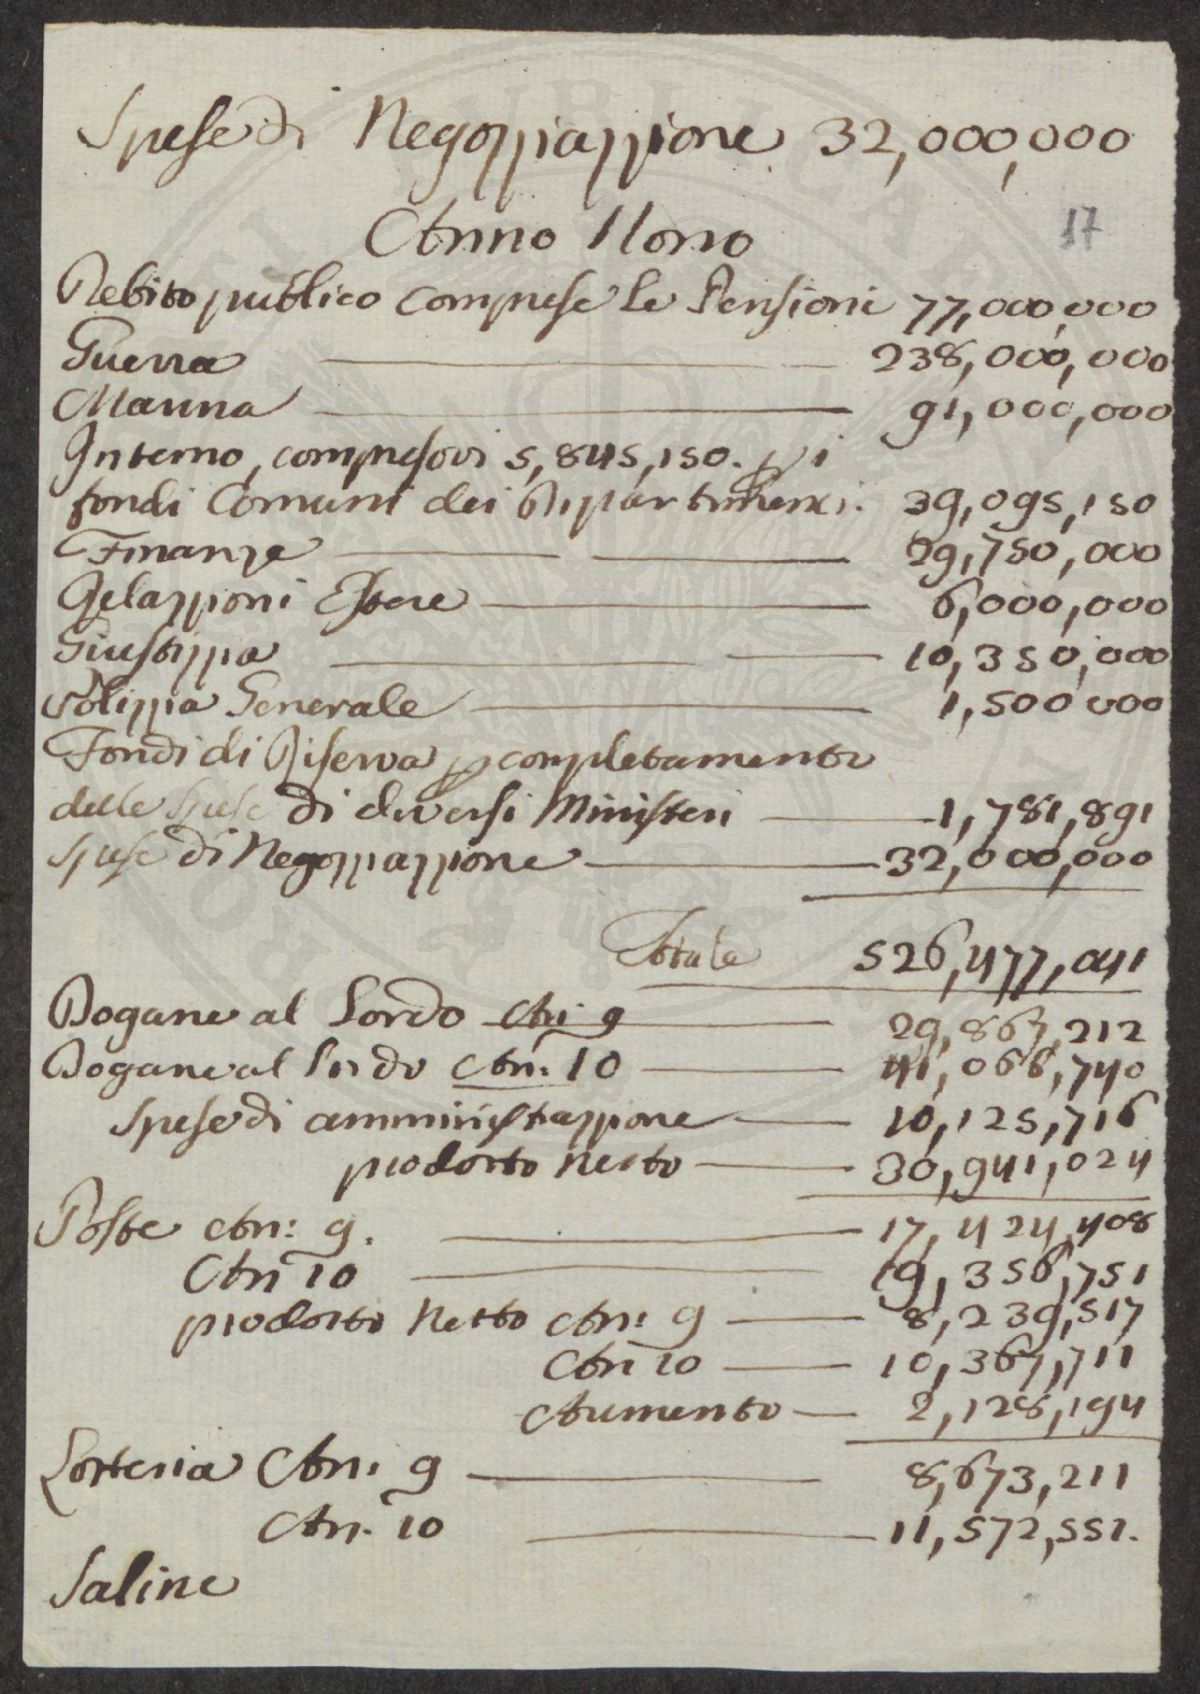 Spese di Negozziazzione 32,000,000
17
Anno Nono
Debito publico comprese le Pensioni 77,000,000
Guerra 238,000,000
Marina 91,000,000
Interno, compresovi 5,845,150. p i
fondi Comuni dei Dipartimenti. 39,095,150
Finanze 29,750,000
Relazzioni Estere 6,000,000
Giustizzia 10,350,000
Polizzia Generale 1,500 000
Fondi di Riserva p completamento
delle spese di diversi Ministeri 1,781,891
spese di Negozziazzione 32,000,000
Totale 526,477,041
Dogane al Lordo An: 9 29,867,212
Dogane al Lordo An: 10 41,066,740
Spese di amministrazzione 10,125,716
prodotto netto 30,941,024
Poste An: 9. 17,424,408
An: 10 19,356,751
prodotto Netto An: 9 8,239,517
An: 10 10,367,711
Aumento 2,128,194
Lotteria An: 9 8,673,211
An: 10 11,572,551.
Saline